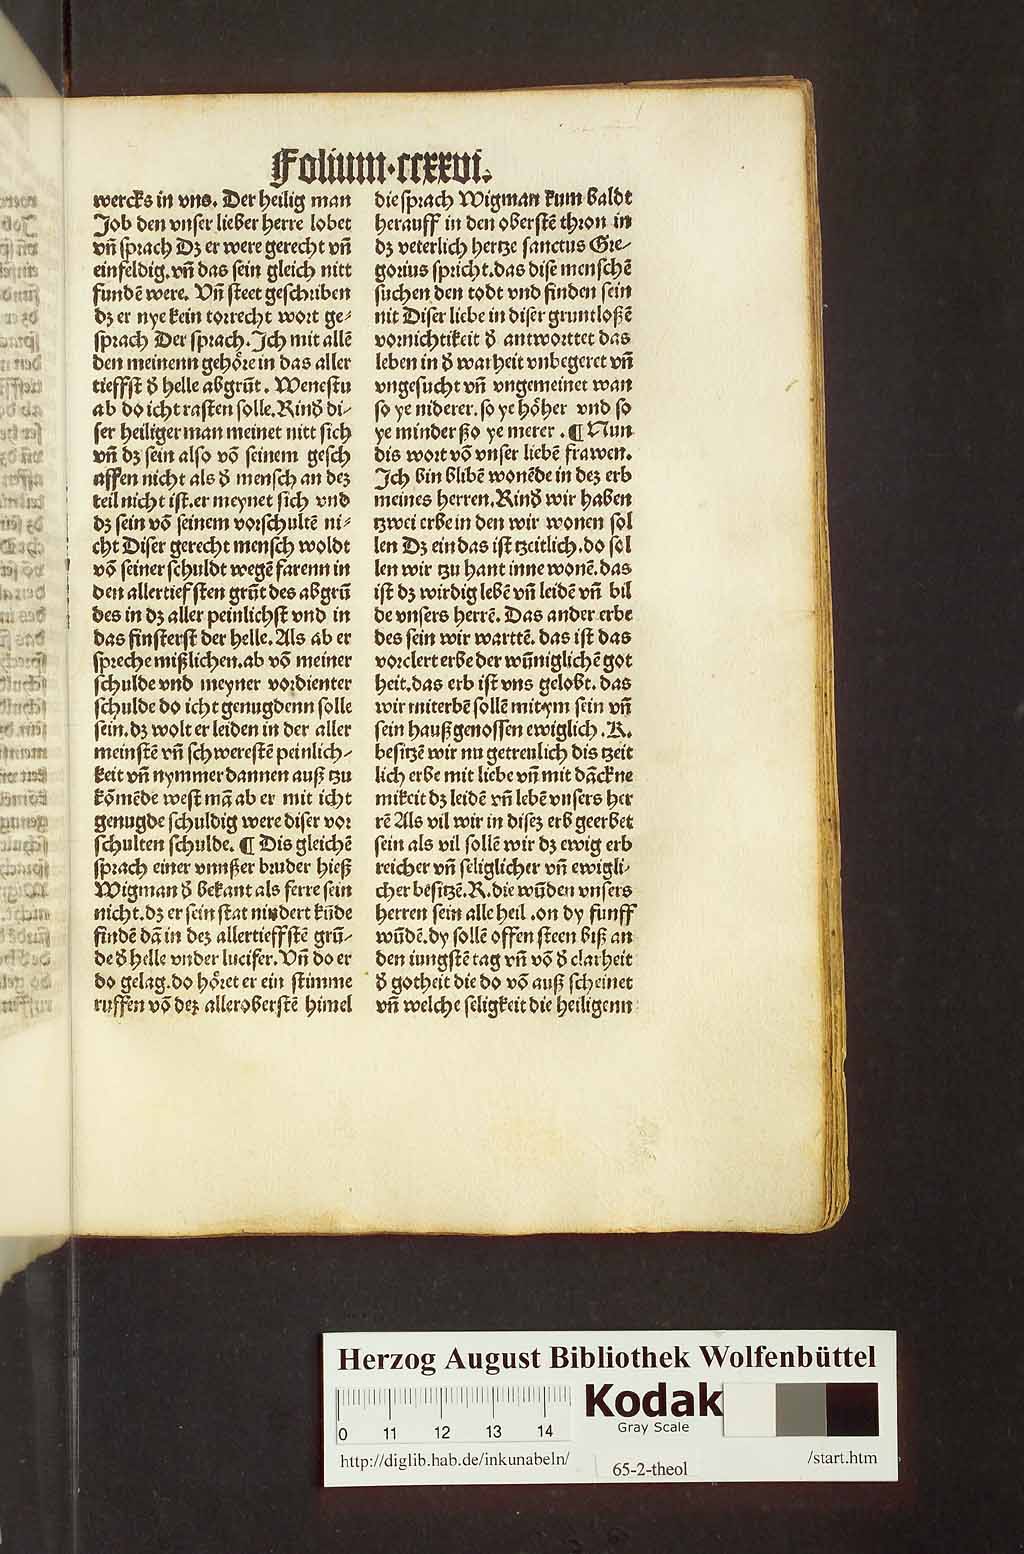 Folium·ccxxvi.
wercks in vns. Der heilig man
Job den vnser lieber herre lobet
vñ sprach Dz er were gerecht vñ
einfeldig.vñ das sein gleich nitt
fundē were. Vñ steet geschriben
dz er nye kein torrecht wort ge⸗
sprach Der sprach.Ich mit allē
den meinenn gehöre in das aller
tieffst d̕ helle abgrūt. Wenestu
ab do icht rasten solle.Rind̕ di⸗
ser heiliger man meinet nitt sich
vñ dz sein also vō seinem gesch
affen nicht als d̕ mensch an dez
teil nicht ist.er meynet sich vnd
dz sein vō seinem vorschultē ni⸗
cht Diser gerecht mensch woldt
vō seiner schuldt wegē farenn in
den allertiefsten grūt des abgrū
des in dz aller peinlichst vnd in
das finsterst der helle. Als ab er
spreche mißlichen.ab vō meiner
schulde vnd meyner vordienter
schulde do icht genugdenn solle
sein.dz wolt er leiden in der aller
meinstē vñ schwerestē peinlich⸗
keit vñ nymmer dannen auß tzu
kōmēde west mā ab er mit icht
genugde schuldig were diser vor
schulten schulde. ¶ Dis gleichē
sprach einer vnnßer bruder hieß
Wigman d̕ bekant als ferre sein
nicht.dz er sein stat nindert kūde
findē dā in dez allertieffstē grū⸗
de d̕ helle vnder lucifer. Vñ do er
do gelag.do höret er ein stimme
ruffen vō dez alleroberstē himel
die sprach Wigman kum baldt
herauff in den oberstē thron in
dz veterlich hertze sanctus Gre⸗
gorius spricht.das dise menschē
suchen den todt vnd finden sein
nit Diser liebe in diser gruntloßē
vornichtikeit d̕ antworttet das
leben in d̕ warheit vnbegeret vñ
vngesucht vñ vngemeinet wan
so ye niderer.so ye höher vnd so
ye minder ßo ye merer .¶ Nun
dis wort vō vnser liebē frawen.
Ich bin blibē wonēde in dez erb
meines herren.Rind̕ wir haben
tzwei erbe in den wir wonen sol
len Dz ein das ist tzeitlich.do sol
len wir tzu hant inne wonē.das
ist dz wirdig lebē vñ leidē vñ bil
de vnsers herrē. Das ander erbe
des sein wir warttē. das ist das
vorclert erbe der wūniglichē got
heit.das erb ist vns gelobt. das
wir miterbē sollē mit ym sein vñ
sein haußgenossen ewiglich .K.
besitzē wir nu getreulich dis tzeit
lich erbe mit liebe vñ mit dāckne
mikeit dz leidē vñ lebē vnsers her
rē Als vil wir in disez erb geerbet
sein als vil sollē wir dz ewig erb
reicher vñ seliglicher vñ ewigli⸗
cher besitzē.R.die wūden vnsers
herren sein alle heil .on dy funff
wūdē.dy sollē offen steen biß an
den iungstē tag vñ vō d̕ clarheit
d̕ gotheit die do vō auß scheinet
vñ welche seligkeit die heiligenn
Herzog August Bibliothek Wolfenbüttel
Kodak
Gray Scale
0 11 12 13 14
http://diglib.hab.de/inkunabeln/
65-2-theol
/start.htm